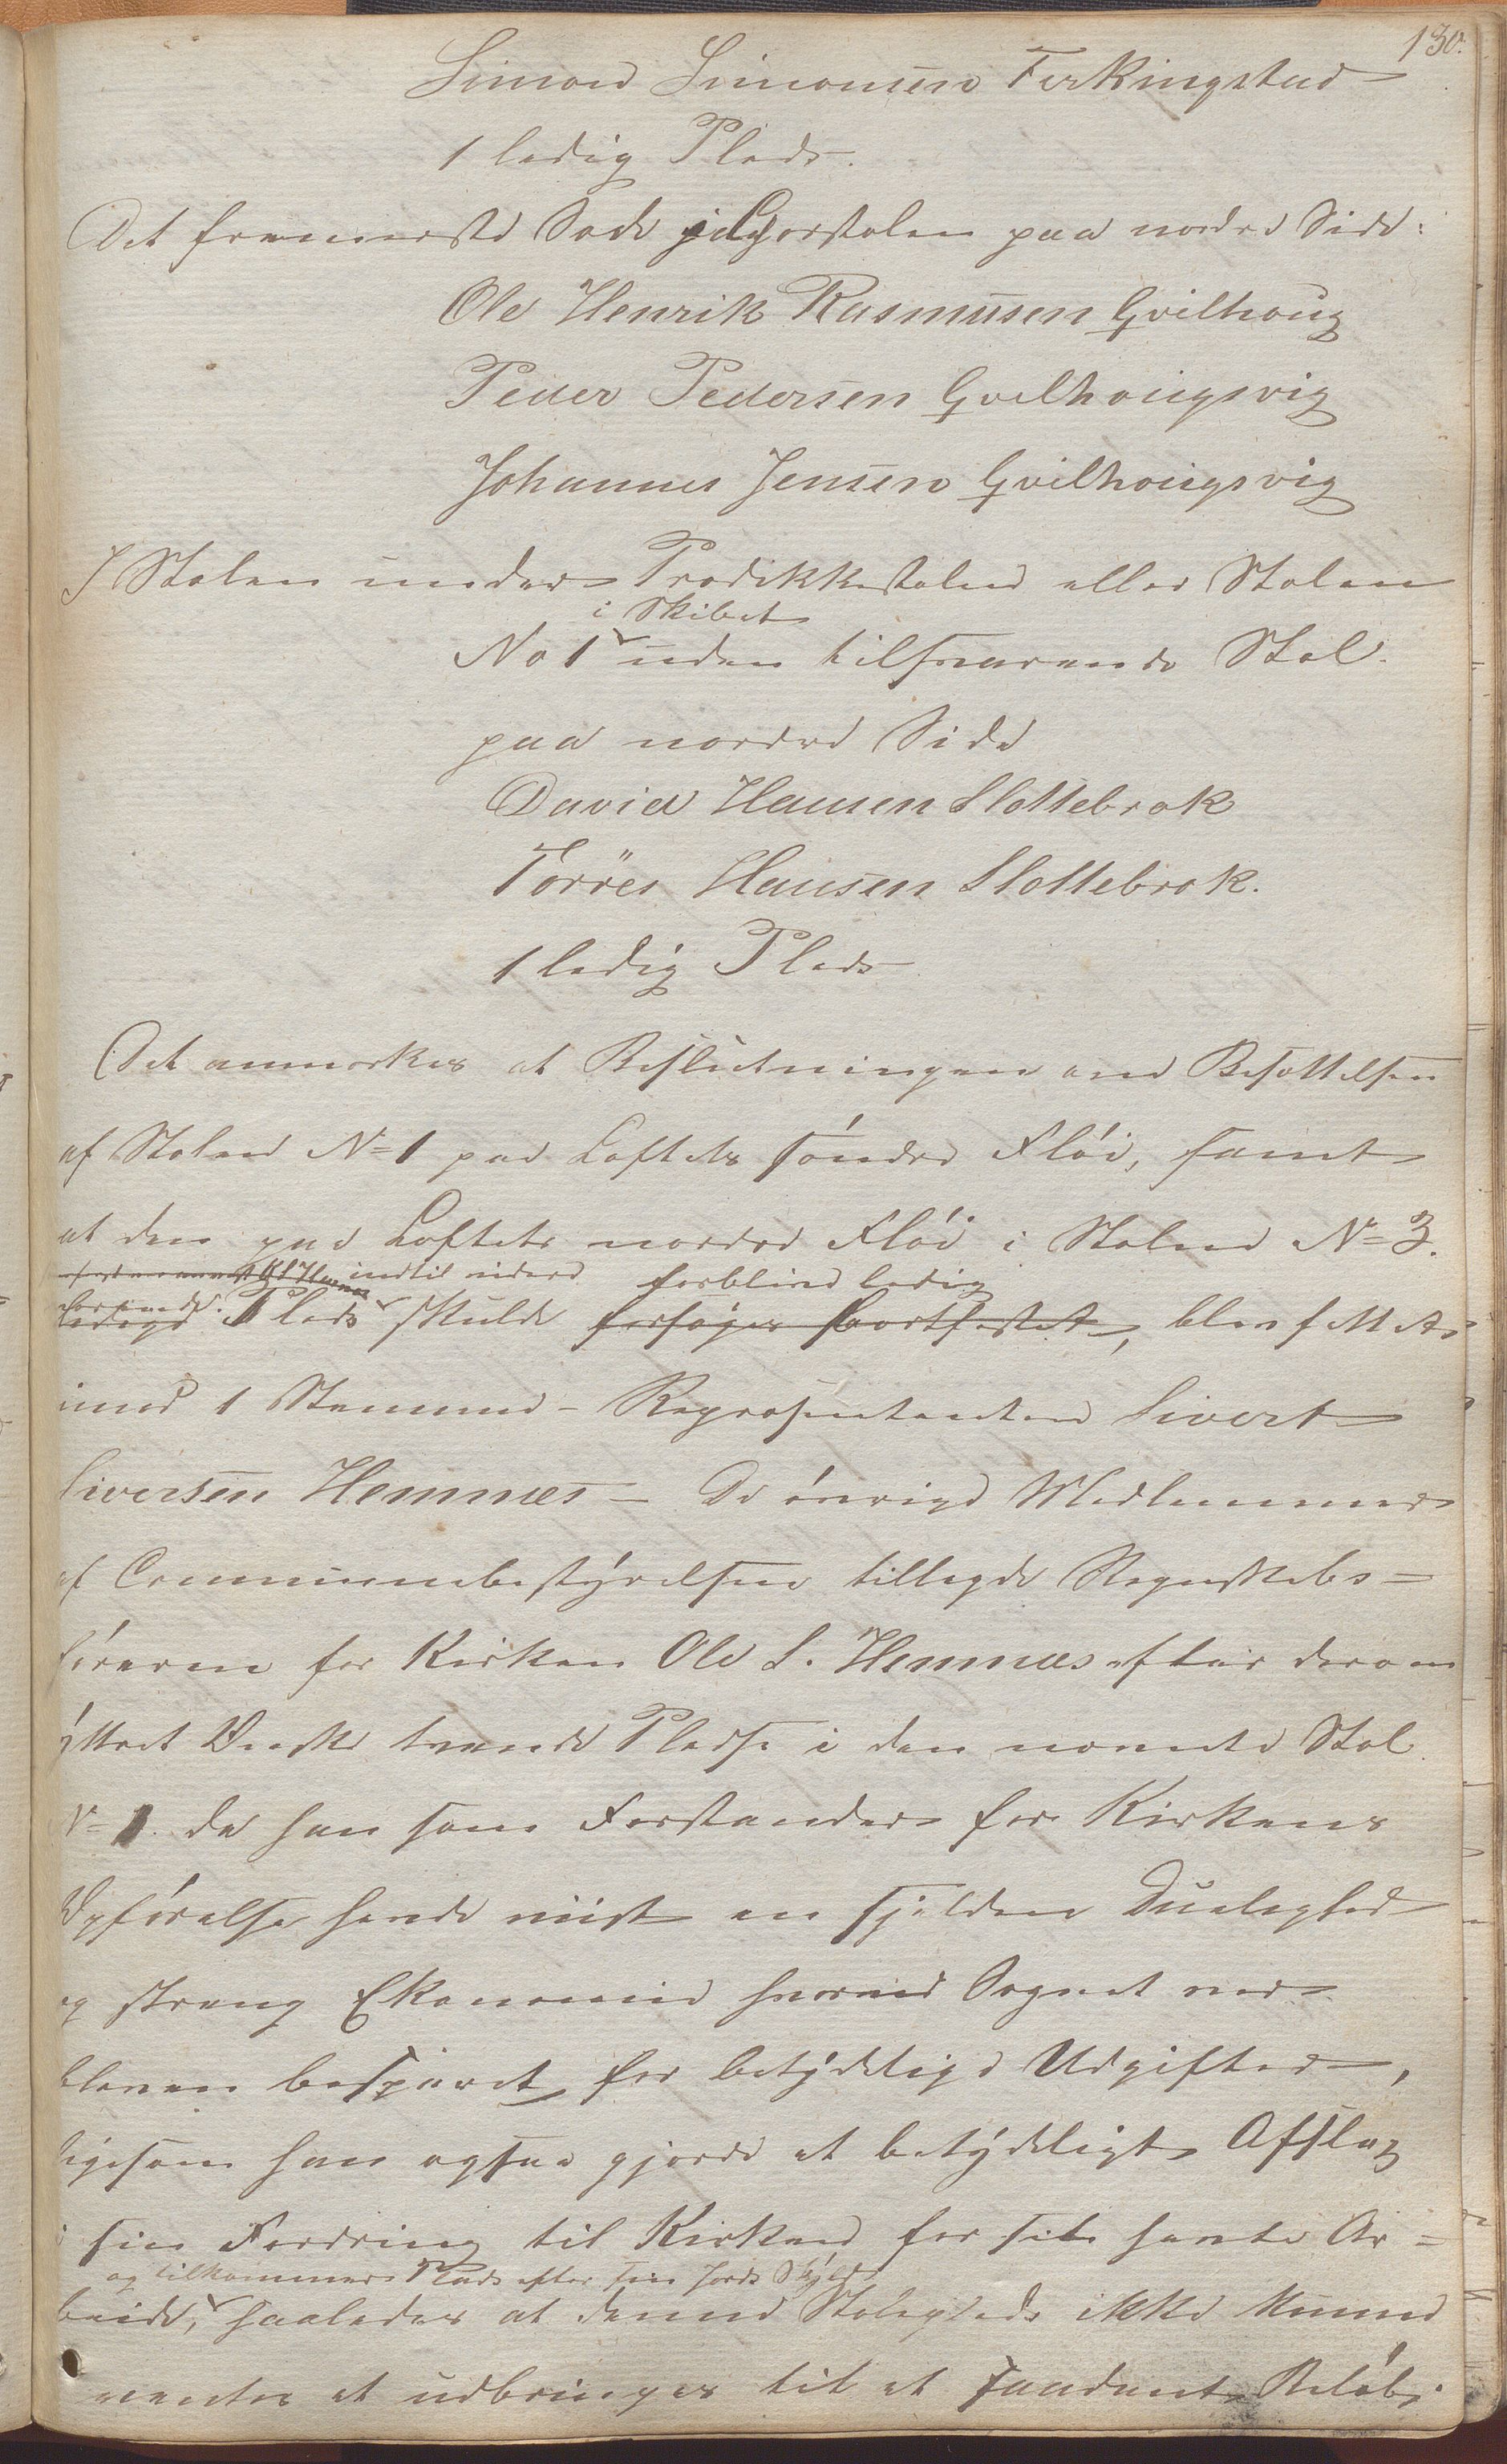 130.
Simon Simonsen Ferkingstad
1 ledig Plads.
Det fremmerste Sæde i Chorstolen paa nordre Side:
Ole Henrik Rasmussen Qvilhoug
Peder Pedersen Qvilhougsvig
Johannes Jensen Qvilhougsvig
I Stolen under Prædikkestolen eller Stolen
i Skibet
No 1 uden tilsvarende Stol
paa nordre Side
David Hansen Slottebrok
Törres Hansen Slottebrok.
1 ledig Plads
Det anmærkes at Beslutningen om Besættelsen
af Stolen No 1 paa Loftets söndre Flöi, samt
at den paa Loftets nordre Flöi i Stolen No 3.
indtil videre forblive ledig
ledige Plads skulde forsöges bortfæstet, blev fattet
imod 1 Stemme - Repræsentanten Sivert
Siversen Hemnes - De övrige Medlemmer
af Communebestyrelsen tillagde Regnskabs-
föreren for Kirken Ole S. Hemnæs efter derom
yttret Önske tvende Pladse i den nævnte Stol
No 1. da han som Forstander for Kirkens
Opförelse havde viist en sjelden Duelighed
og streng Ekonomie hvorved Sognet var
bleven besparet for betydelige Udgifter,
ligesom han ogsaa gjorde et betydeligt Afslag
i sin Fordring til Kirken for sit havte Ar-
og tilkommer Plads efter sin Jords Skyld
beide, saaledes at denne Stoleplads ikke kunne
ventes at udbringes til et saadant Belöb